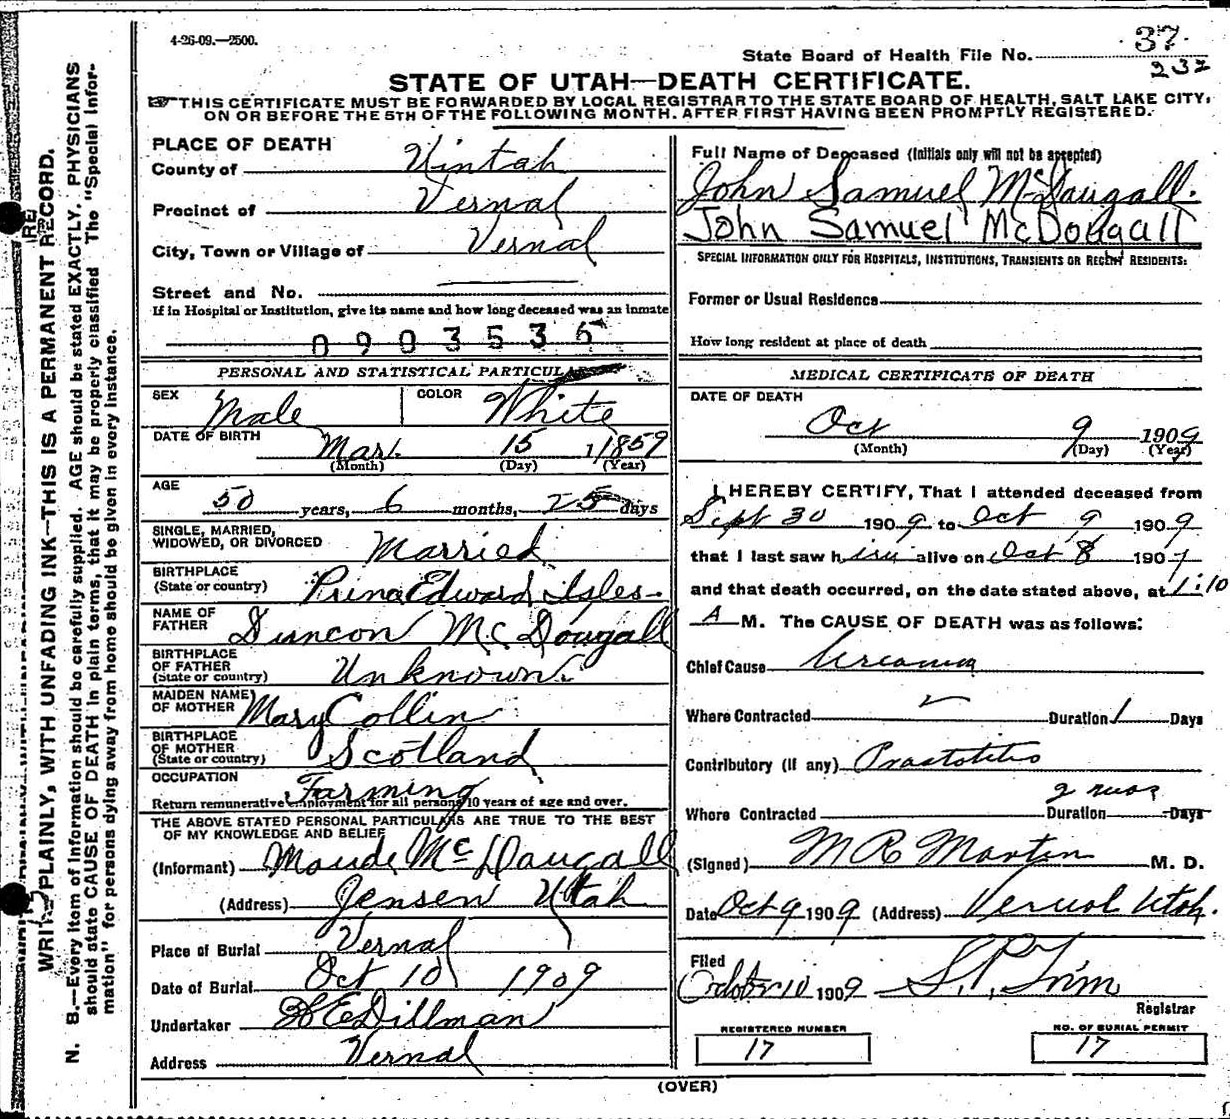 4-26-09.—2500.
State Board of Health File No. 37
232
STATE OF UTAH—DEATH CERTIFICATE.
THIS CERTIFICATE MUST BE FORWARDED BY LOCAL REGISTRAR TO THE STATE BOARD OF HEALTH, SALT LAKE CITY,
ON OR BEFORE THE 5TH OF THE FOLLOWING MONTH. AFTER FIRST HAVING BEEN PROMPTLY REGISTERED.
PLACE OF DEATH
County of Uintah
Precinct of Vernal
City, Town or Village of Vernal
Street and No.
If in Hospital or Institution, give its name and how long deceased was an inmate
0903536
PERSONAL AND STATISTICAL PARTICULARS
SEX Male COLOR White
DATE OF BIRTH Mar. 15 1859
(Month) (Day) (Year)
AGE 50 years, 6 months, 25 days
SINGLE, MARRIED,
WIDOWED, OR DIVORCED Married
BIRTHPLACE
(State or country) Prince Edward Isles
NAME OF
FATHER Duncon McDougall
BIRTHPLACE
OF FATHER
(State or country) Unknown
MAIDEN NAME
OF MOTHER Mary Collin
BIRTHPLACE
OF MOTHER
(State or country) Scotland
OCCUPATION Farming
Return remunerative employment for all persons 10 years of age and over.
THE ABOVE STATED PERSONAL PARTICULARS ARE TRUE TO THE BEST
OF MY KNOWLEDGE AND BELIEF
(Informant) Maude McDougall
(Address) Jensen Utah
Place of Burial Vernal
Date of Burial Oct 10 1909
Undertaker Dillman
Address Vernal
Full Name of Deceased (Initials only will not be accepted)
John Samuel McDougall.
John Samuel McDougall
SPECIAL INFORMATION ONLY FOR HOSPITALS, INSTITUTIONS, TRANSIENTS OR RECENT RESIDENTS:
Former or Usual Residence
How long resident at place of death
MEDICAL CERTIFICATE OF DEATH
DATE OF DEATH
Oct 9 1909
(Month) (Day) (Year)
I HEREBY CERTIFY, That I attended deceased from
Sept 30 1909 to Oct 9 1909
that I last saw him alive on Oct 8 190
and that death occurred, on the date stated above, at 1:10
A M. The CAUSE OF DEATH was as follows:
Chief Cause Uraemia
Where Contracted Duration 1 Days
Contributory (if any) Prostatitis
2 mos
Where Contracted Duration Days
(Signed) M. D.
Date Oct 9 1909 (Address) Vernal Utah.
Filed
October 10 1909
Registrar
REGISTERED NUMBER
17
NO. OF BURIAL PERMIT
17
(OVER)
WRITE PLAINLY, WITH UNFADING INK—THIS IS A PERMANENT RECORD.
N. B.—Every item of information should be carefully supplied. AGE should be stated EXACTLY. PHYSICIANS
should state CAUSE OF DEATH in plain terms, that it may be properly classified The "Special Infor-
mation" for persons dying away from home should be given in every instance.